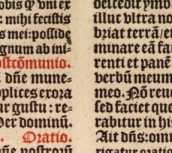 obis qd vni ex
: mihi fecistis
s mei: posside
gnum ab ini-
ostcōmunio.
dn̄e mune-
plices exora
ur gustu: re-
er dominū.
Oratio.
illuc vltra no
briat terrā: et
minare eā fa
renti et panē
verbū meum
meo. Nō reue
sed faciet que
rabitur in hi
Ait dn̄s: om